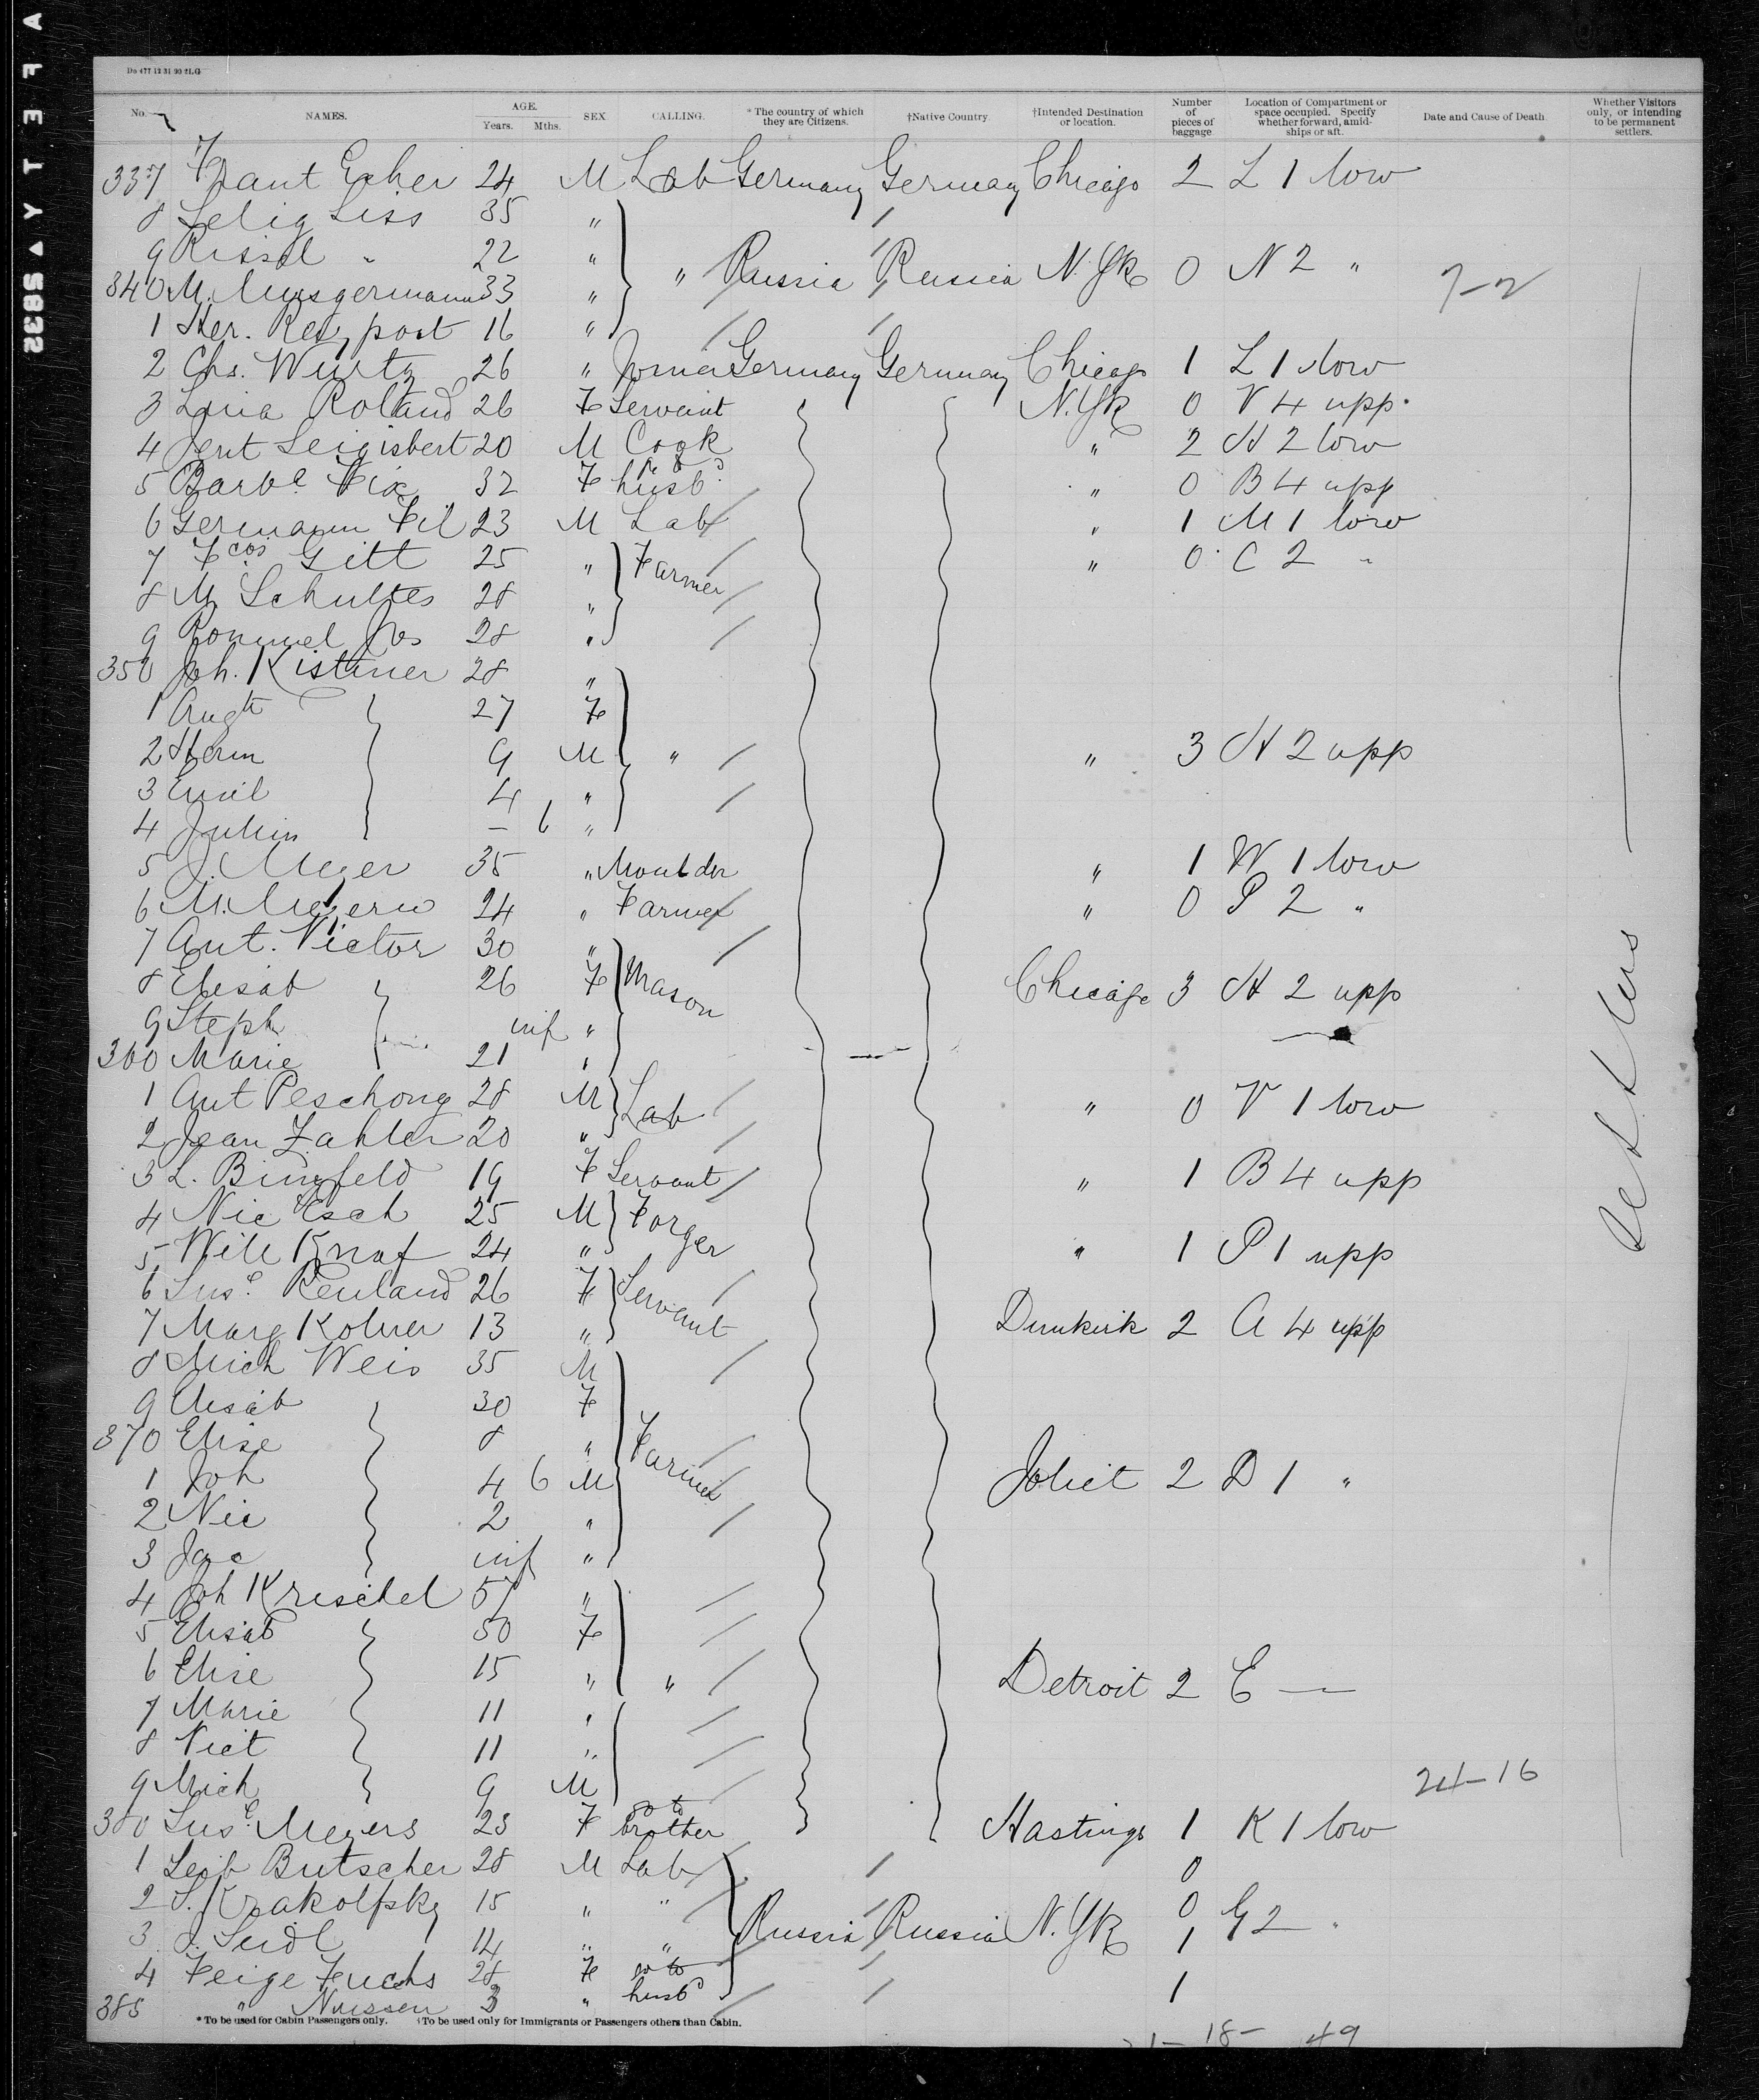 SAFETY ▲ 5832
Do 477 12 31 90 2LG
No. NAMES. AGE. Years. Mths. SEX CALLING. * The country of which they are Citizens. †Native Country. †Intended Destination or location. Number of pieces of baggage Location of Compartment or space occupied. Specify whether forward, amidships or aft. Date and Cause of Death. Whether Visitors only, or intending to be permanent settlers.
337 24 M Lab Germany Germany Chicago 2 L 1 low
8 Selig Liss 35 "
9 " 22 "
340 M. 33 " " Russia Russia N.Yk 0 N 2 " 7-2
1 16 "
2 Chs. Wurtz 26 " Germany Germany Chicago 1 L 1 low
3 Roland 26 F Servant N.Yk 0 V 4 upp.
4 20 M Cook " 2 H 2 low
5 Barb.e Fix 32 F husb.d " 0 B 4 upp
6 Germann 23 M Lab " 1 M 1 low
7 Gitt 25 " Farmer " 0 C 2 "
8 M Schultes 28 "
9 Rommel Jos 28 "
350 Joh. Kistner 28 "
1 Aug 27 F
2 Herm 9 M " " 3 H 2 upp
3 Emil 4 "
4 — 6 "
5 J. Meyer 35 " Moulder " 1 W 1 low
6 M. 24 " Farmer " 0 P 2 "
7 Ant. Victor 30 "
8 Elisab 26 F Mason Chicago 3 H 2 upp
9 Steph inf "
360 Marie 21 "
1 Ant Peschong 28 M Lab " 0 V 1 low
2 Jean Zahler 20 "
3 L. Bingfeld 19 F Servant " 1 B 4 upp
4 Nic Esch 25 M Forger " 1 P 1 upp
5 Will Knaf 24 "
6 Sus.e Reuland 26 F Servant
7 Marg Kohner 13 " Dunkirk 2 A 4 upp
8 Mich Weis 35 M
9 Elisab 30 F
370 Elise 8 " Farmer
1 Joh 4 6 M Joliet 2 D 1 "
2 Nic 2 "
3 Jac inf "
4 Joh Krischel 57 "
5 Elisab 50 F
6 Elise 15 " " Detroit 2 E —
7 Marie 11 "
8 Vict 11 "
9 Mich 9 M 24-16
380 Sus.e Meyers 23 F to brother Hastings 1 K 1 low
1 Leib Butscher 28 M Lab 0
2 S. Krakolfsky 15 " " Russia Russia N.Yk 0 G 2 "
3 J. Seidl 14 " " 1
4 Feige Fuchs 28 F to husbd 1
385 " Nussen 3 "
settlers
* To be used for Cabin Passengers only. †To be used only for Immigrants or Passengers others than Cabin.
18- 49